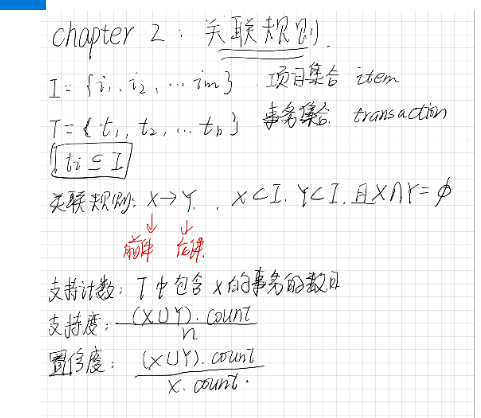 chapter 2: 关联规则.
I = {i₁, i₂, ... im} 项目集合 item
T = {t₁, t₂, ... tn} 事务集合. transaction
ti ⊆ I
关联规则: X→Y, X⊂I, Y⊂I, 且X∩Y=ϕ
前件 后件.
支持计数: T中包含X的事务的数目
支持度: (X∪Y).count / n
置信度: (X∪Y).count / X.count.